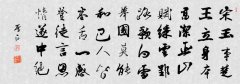 宋玉事楚
王立身本
高潔巫山
賦綵雲郢
路歌白雪
舉國莫能
和巴人皆
卷舌一惑
登徒言恩
情遂中絕